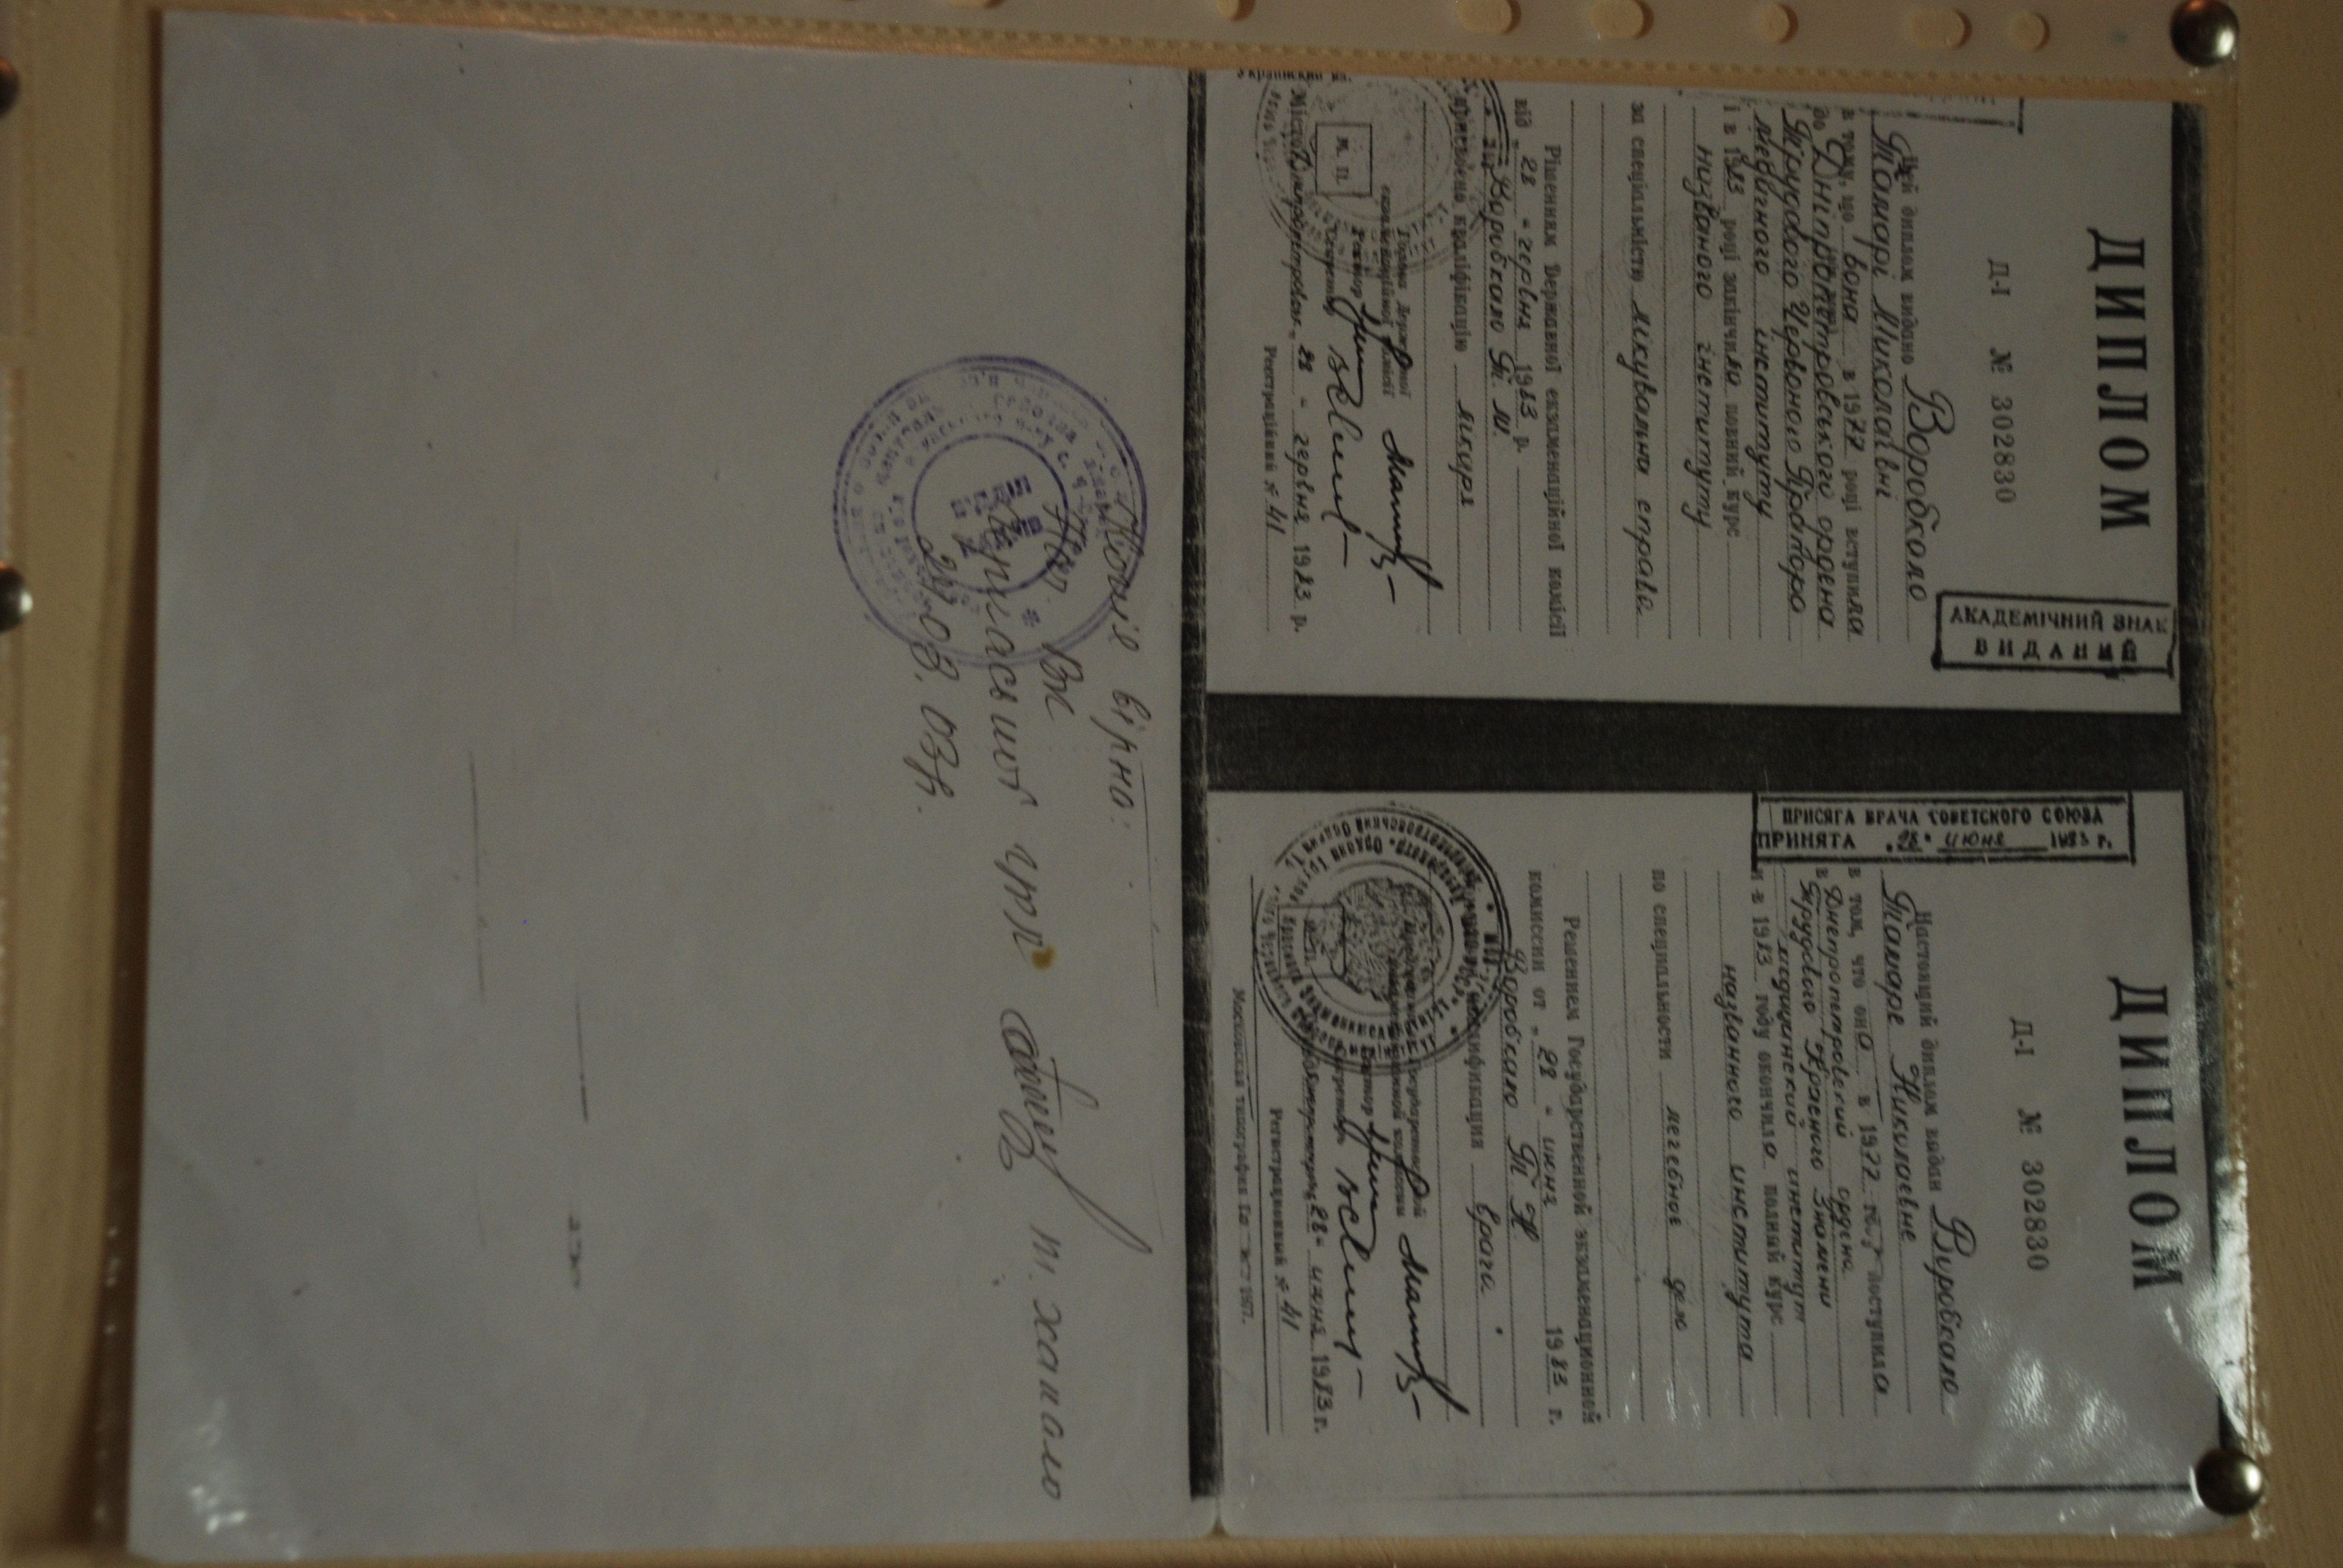 ДИПЛОМ
АКАДЕМІЧНИЙ ЗНАК
ВИДАНИЙ
Д-І № 302830
Цей диплом видано Воробкало
Тамарі Миколаївні
в тому, що вона в 1977 році вступила
до Дніпропетровського ордена
Трудового Червоного Прапора
медичного інституту
і в 1983 році закінчила повний курс
названого інституту
за спеціальністю лікувальна справа
Рішенням Державної екзаменаційної комісії
від „28" червня 1983 р.
Воробкало Т. М.
присвоєно кваліфікацію лікаря
Голова Державної
екзаменаційної комісії
Ректор
Секретар
М. П.
Місто Дніпропетровськ „28" червня 1983 р.
Реєстраційний № 41
ДИПЛОМ
ПРИСЯГА ВРАЧА СОВЕТСКОГО СОЮЗА
ПРИНЯТА „28" июня 1983 г.
Д-І № 302830
Настоящий диплом выдан Воробкало
Тамаре Николаевне
в том, что она в 1977 году поступила
в Днепропетровский ордена
Трудового Красного Знамени
медицинский институт
и в 1983 году окончила полный курс
названного института
по специальности лечебное дело
Решением Государственной экзаменационной
комиссии от „28" июня 1983 г.
Воробкало Т. Н.
квалификация врача
Председатель Государственной
экзаменационной комиссии
Ректор
Секретарь
М. П.
28" июня 1983 г.
Регистрационный № 41
Московская типография 1977.
Копія вірна:
Нач. ВК
Черкаської
Т. Хапало
03р.